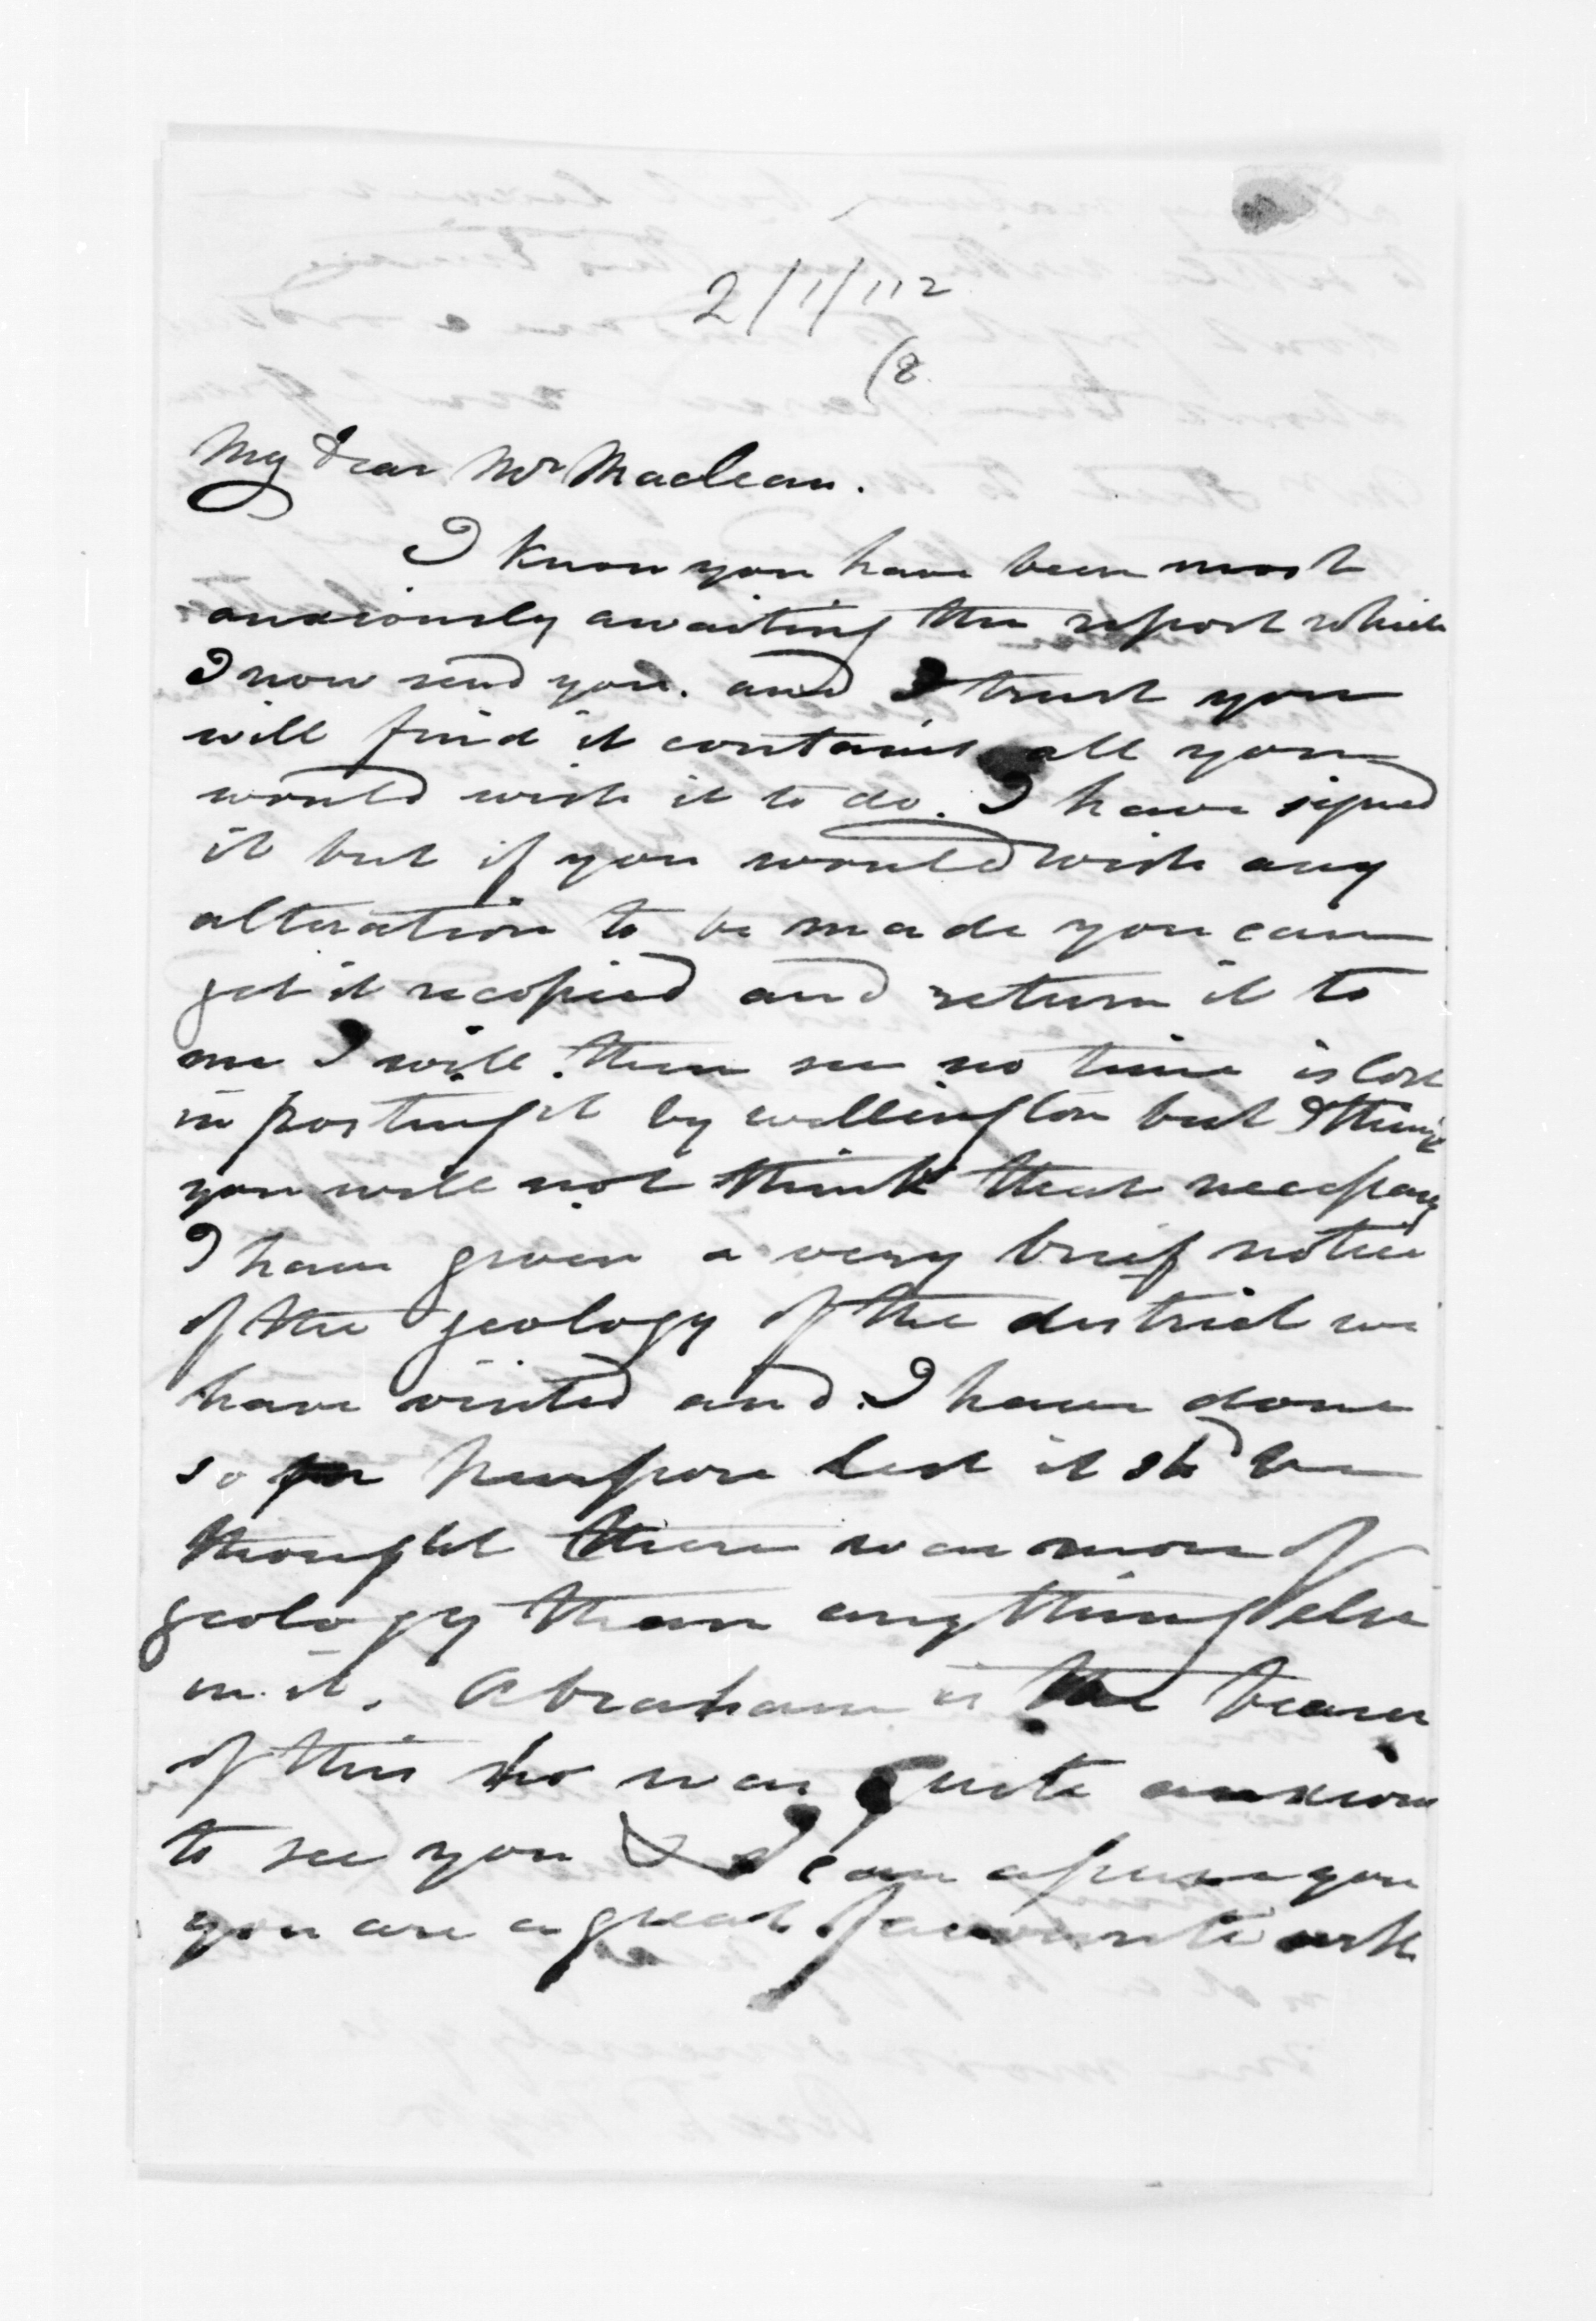 2/1/112
(8.
My dear Mr Maclean.
I know you have been most
anxiously awaiting the report which
I now send you. and I trust you
will find it contains all you
would wish it to do. I have signed
it but if you would wish any
alteration to be made you can
get it recopied and return it to
me I will then see no time is lost
in posting it by wellington but I think
you will not think that necessary
I have given a very brief notice
of the geology of the district we
have visited and I have done
so purpose lest it shd be
thought there was more of
geology than anything else
in it. Abraham is the bearer
of this who was quite anxious
to see you & I can assure you
you are a great favourite with